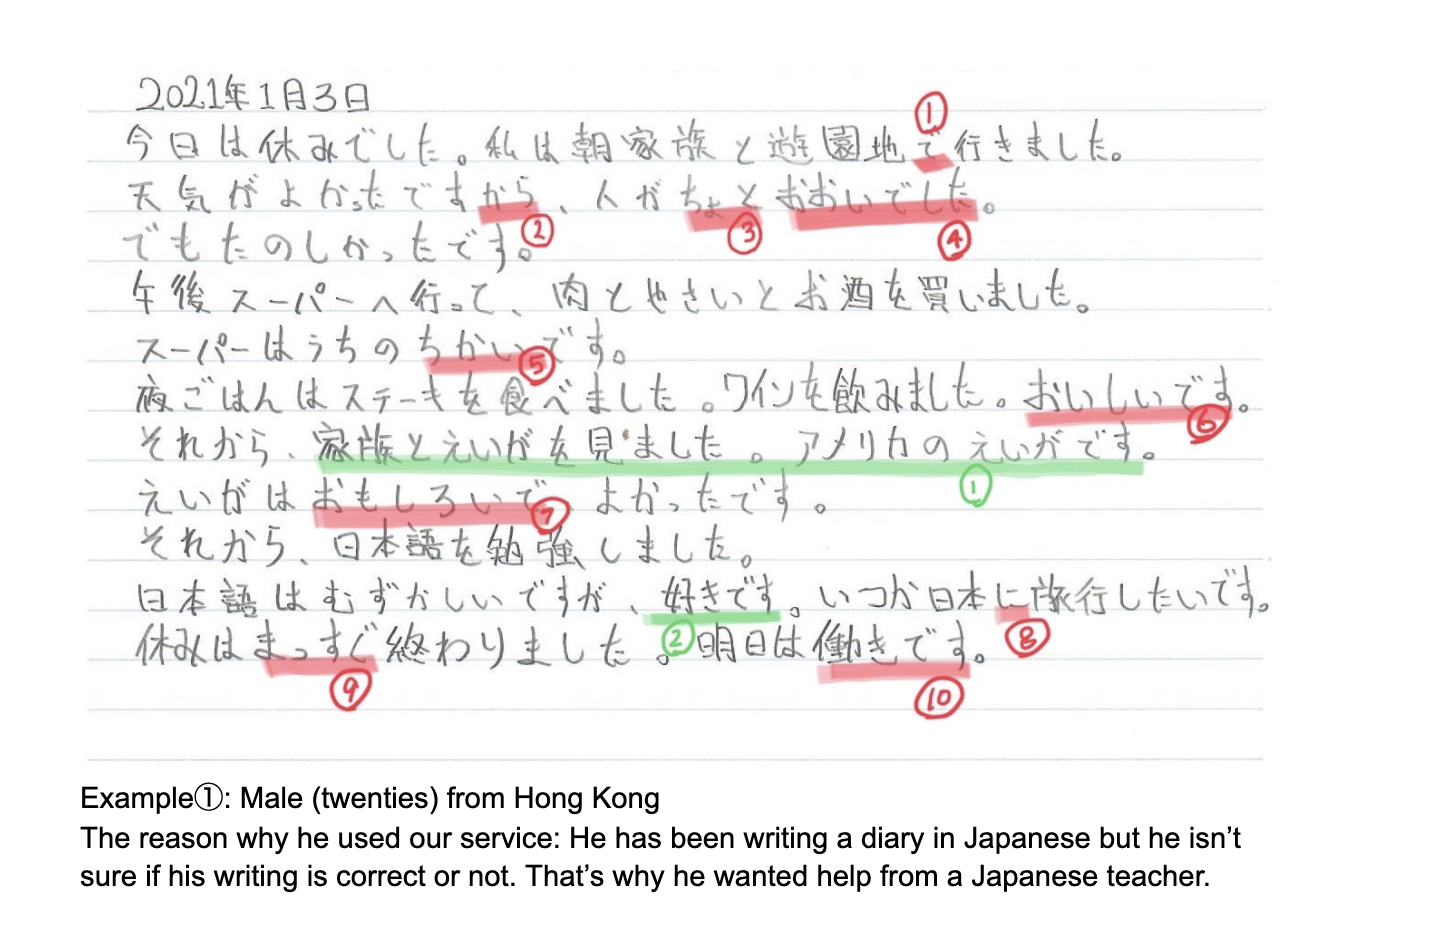 2021年1月3日
①
今日は休みでした。私は朝家族と遊園地で行きました。
天気がよかったですから、人がちょとおおいでした。
② ③ ④
でもたのしかったです。
午後スーパーへ行って、肉とやさいとお酒を買いました。
スーパーはうちのちかいです。
⑤
夜ごはんはステーキを食べました。ワインを飲みました。おいしいです。
⑥
それから、家族とえいがを見ました。アメリカのえいがです。
①
えいがはおもしろいで、よかったです。
⑦
それから、日本語を勉強しました。
日本語はむずかしいですが、好きです。いつか日本に旅行したいです。
② ⑧
休みはまっすぐ終わりました。明日は働きです。
⑨ ⑩
Example①: Male (twenties) from Hong Kong
The reason why he used our service: He has been writing a diary in Japanese but he isn’t
sure if his writing is correct or not. That’s why he wanted help from a Japanese teacher.